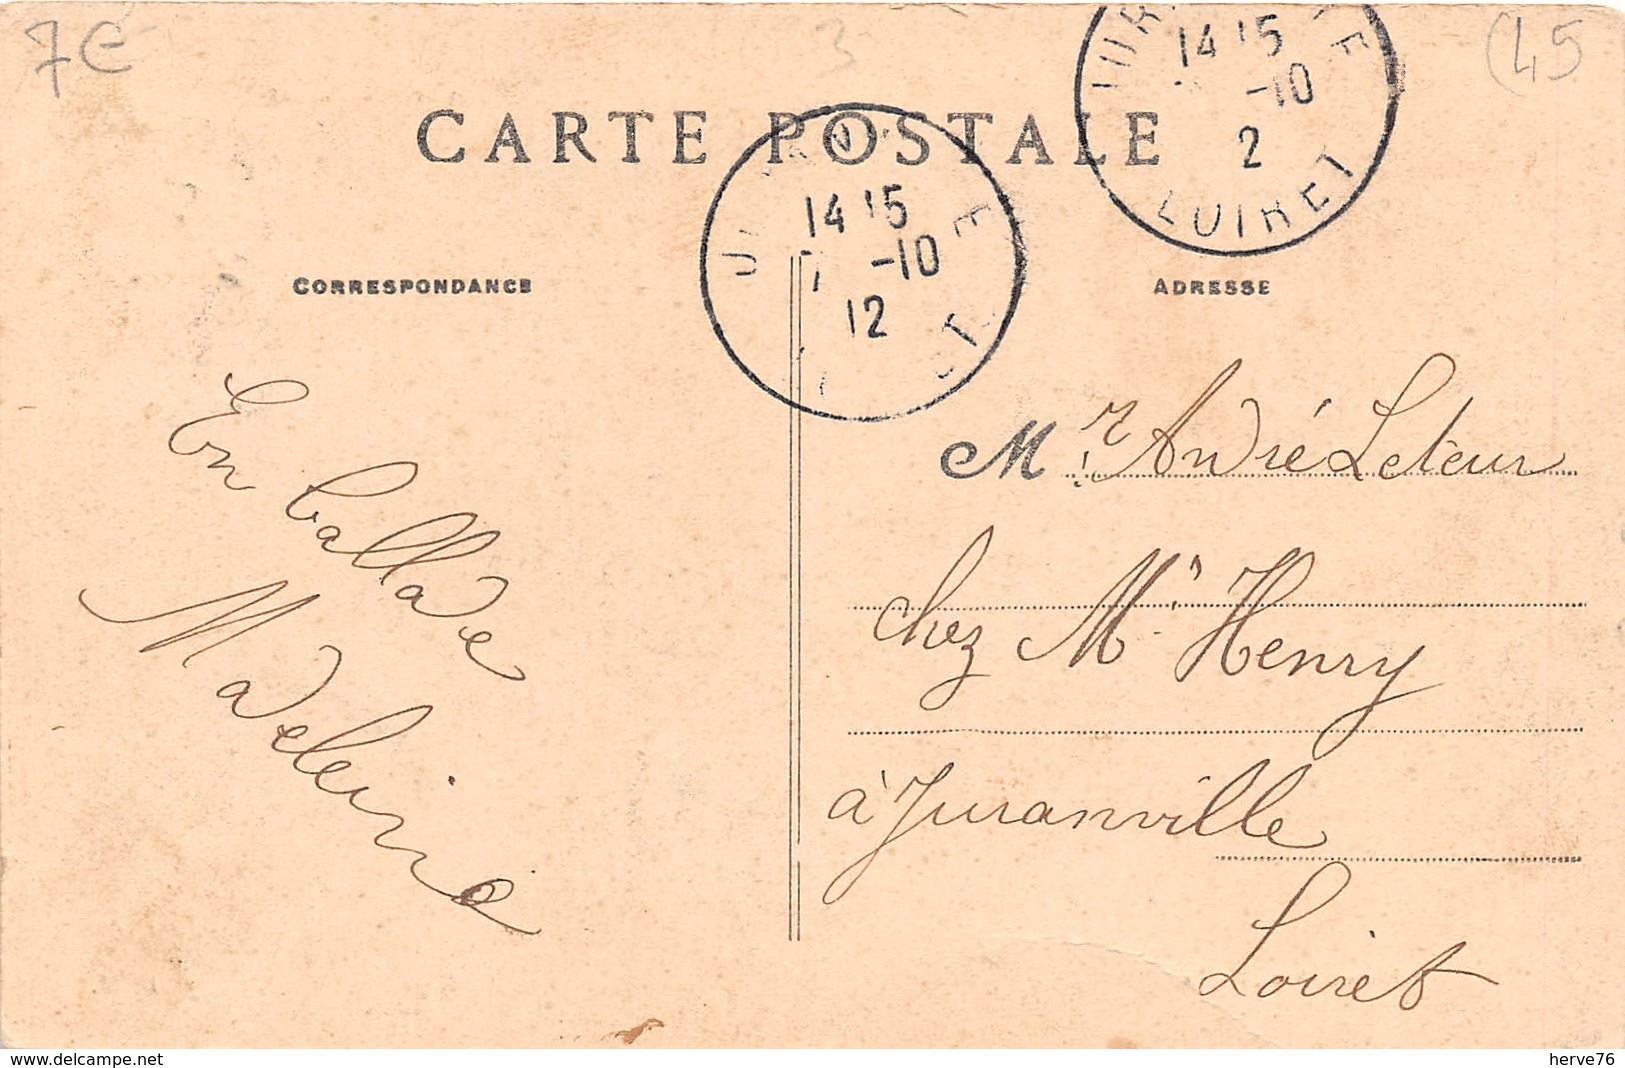 7€
3
(45
CARTE POSTALE
14 15
-10
2
LOIRET
14 15
7 -10
12
CORRESPONDANCE
ADRESSE
En ballade
Madeleine
Mr André Leteur
chez Mr Henry
à Juranville
Loiret
www.delcampe.net
herve76